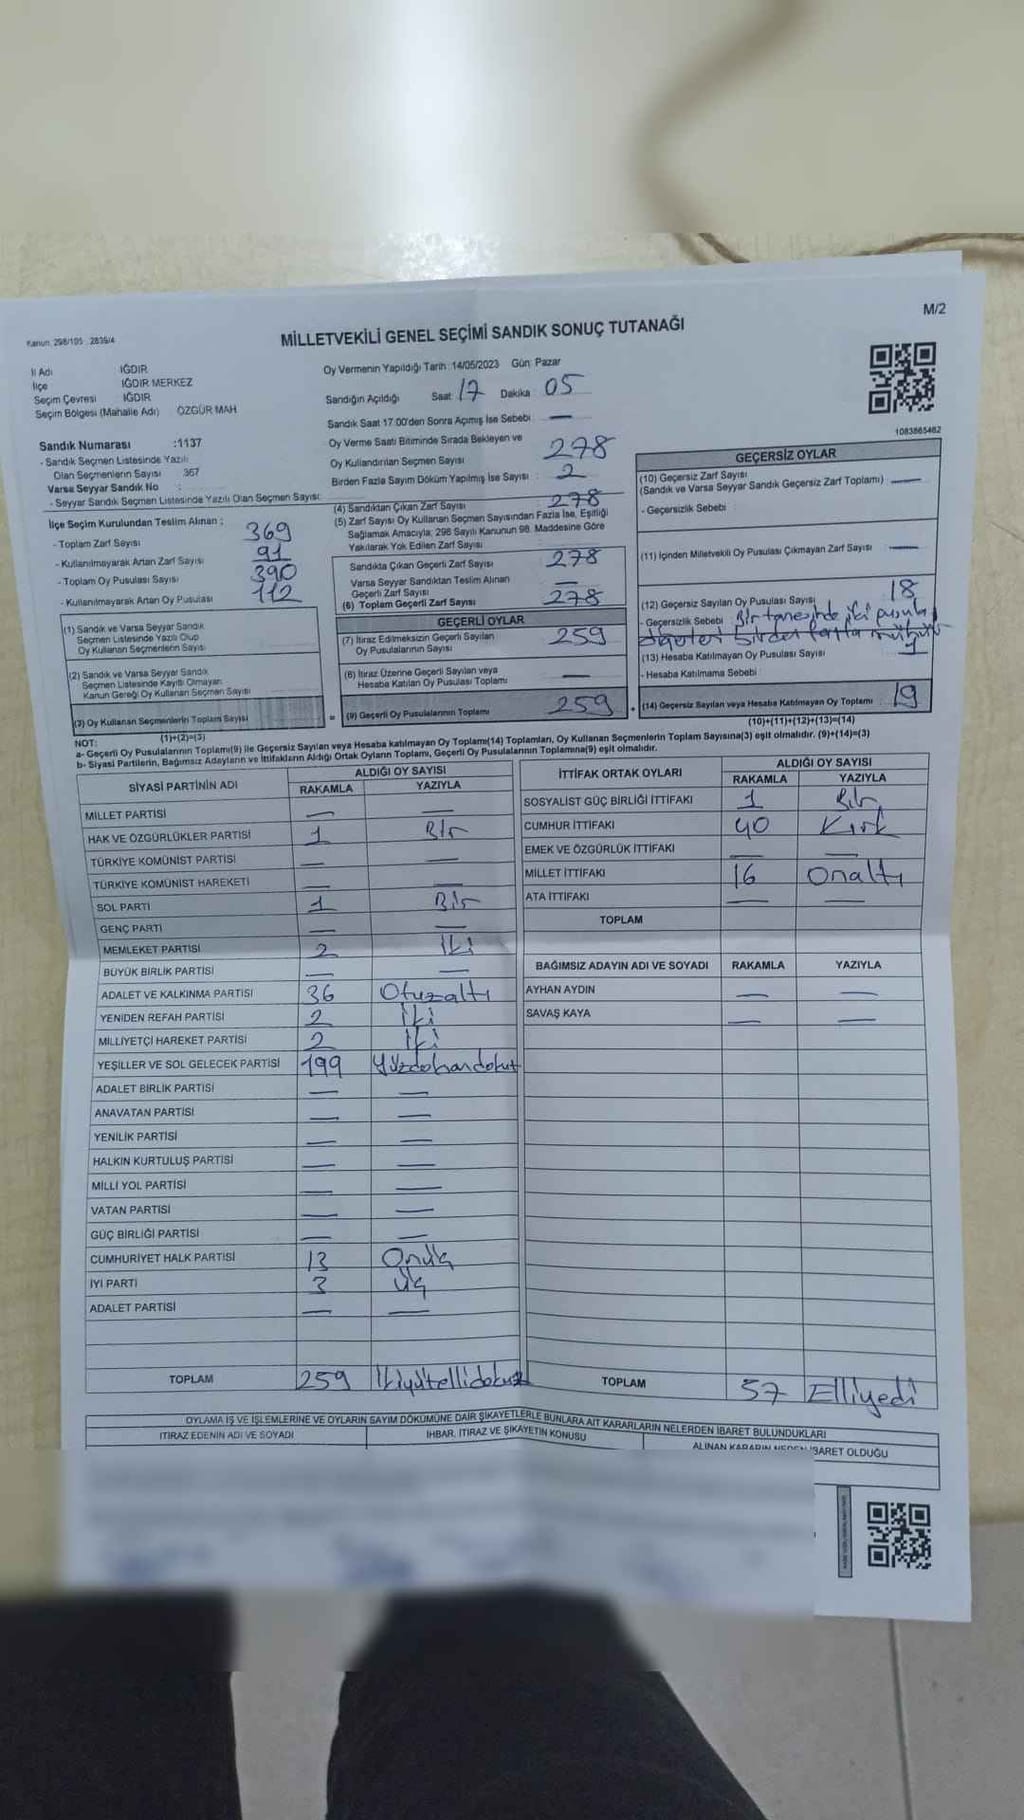 M/2
Kanun: 298/105 2839/4
MİLLETVEKİLİ GENEL SEÇİMİ SANDIK SONUÇ TUTANAĞI
İl Adı IĞDIR
İlçe IĞDIR MERKEZ
Seçim Çevresi IĞDIR
Seçim Bölgesi (Mahalle Adı) ÖZGÜR MAH
Sandık Numarası :1137
- Sandık Seçmen Listesinde Yazılı
Olan Seçmenlerin Sayısı 367
Varsa Seyyar Sandık No :
- Seyyar Sandık Seçmen Listesinde Yazılı Olan Seçmen Sayısı:
İlçe Seçim Kurulundan Teslim Alınan :
- Toplam Zarf Sayısı 369
- Kullanılmayarak Artan Zarf Sayısı 91
- Toplam Oy Pusulası Sayısı 390
- Kullanılmayarak Artan Oy Pusulası 112
(1) Sandık ve Varsa Seyyar Sandık
Seçmen Listesinde Yazılı Olup
Oy Kullanan Seçmenlerin Sayısı
(2) Sandık ve Varsa Seyyar Sandık
Seçmen Listesinde Kayıtlı Olmayan
Kanun Gereği Oy Kullanan Seçmen Sayısı
(3) Oy Kullanan Seçmenlerin Toplam Sayısı
(1)+(2)=(3)
Oy Vermenin Yapıldığı Tarih :14/05/2023 Gün: Pazar
Sandığın Açıldığı Saat 17 Dakika 05
Sandık Saat 17.00'den Sonra Açımış İse Sebebi : —
Oy Verme Saati Bitiminde Sırada Bekleyen ve
Oy Kullandırılan Seçmen Sayısı 278
Birden Fazla Sayım Döküm Yapılmış İse Sayısı : 2
(4) Sandıktan Çıkan Zarf Sayısı 278
(5) Zarf Sayısı Oy Kullanan Seçmen Sayısından Fazla İse, Eşitliği
Sağlamak Amacıyla; 298 Sayılı Kanunun 98. Maddesine Göre
Yakılarak Yok Edilen Zarf Sayısı
Sandıkta Çıkan Geçerli Zarf Sayısı 278
Varsa Seyyar Sandıktan Teslim Alınan
Geçerli Zarf Sayısı —
(6) Toplam Geçerli Zarf Sayısı 278
GEÇERLİ OYLAR
(7) İtiraz Edilmeksizin Geçerli Sayılan
Oy Pusulalarının Sayısı 259
(8) İtiraz Üzerine Geçerli Sayılan veya
Hesaba Katılan Oy Pusulası Toplamı —
= (9) Geçerli Oy Pusulalarının Toplamı 259 +
1083865462
GEÇERSİZ OYLAR
(10) Geçersiz Zarf Sayısı
(Sandık ve Varsa Seyyar Sandık Geçersiz Zarf Toplamı) —
- Geçersizlik Sebebi :
(11) İçinden Milletvekili Oy Pusulası Çıkmayan Zarf Sayısı —
(12) Geçersiz Sayılan Oy Pusulası Sayısı 18
- Geçersizlik Sebebi : Bir tanesinde iki pusula
diğerleri birden fazla mühür
(13) Hesaba Katılmayan Oy Pusulası Sayısı 1
- Hesaba Katılmama Sebebi
(14) Geçersiz Sayılan veya Hesaba Katılmayan Oy Toplamı 19
(10)+(11)+(12)+(13)=(14)
NOT:
a- Geçerli Oy Pusulalarının Toplamı(9) ile Geçersiz Sayılan veya Hesaba katılmayan Oy Toplamı(14) Toplamları, Oy Kullanan Seçmenlerin Toplam Sayısına(3) eşit olmalıdır. (9)+(14)=(3)
b- Siyasi Partilerin, Bağımsız Adayların ve İttifakların Aldığı Ortak Oyların Toplamı, Geçerli Oy Pusulalarının Toplamına(9) eşit olmalıdır.
SİYASİ PARTİNİN ADI ALDIĞI OY SAYISI
RAKAMLA YAZIYLA
MİLLET PARTİSİ — —
HAK VE ÖZGÜRLÜKLER PARTİSİ 1 Bir
TÜRKİYE KOMÜNİST PARTİSİ — —
TÜRKİYE KOMÜNİST HAREKETİ — —
SOL PARTİ 1 Bir
GENÇ PARTİ — —
MEMLEKET PARTİSİ 2 İki
BÜYÜK BİRLİK PARTİSİ — —
ADALET VE KALKINMA PARTİSİ 36 Otuzaltı
YENİDEN REFAH PARTİSİ 2 İki
MİLLİYETÇİ HAREKET PARTİSİ 2 İki
YEŞİLLER VE SOL GELECEK PARTİSİ 199 Yüzdoksandokuz
ADALET BİRLİK PARTİSİ — —
ANAVATAN PARTİSİ — —
YENİLİK PARTİSİ — —
HALKIN KURTULUŞ PARTİSİ — —
MİLLİ YOL PARTİSİ — —
VATAN PARTİSİ — —
GÜÇ BİRLİĞİ PARTİSİ — —
CUMHURİYET HALK PARTİSİ 13 Onüç
İYİ PARTİ 3 Üç
ADALET PARTİSİ — —
TOPLAM 259 İkiyüzellidokuz
İTTİFAK ORTAK OYLARI ALDIĞI OY SAYISI
RAKAMLA YAZIYLA
SOSYALİST GÜÇ BİRLİĞİ İTTİFAKI 1 Bir
CUMHUR İTTİFAKI 40 Kırk
EMEK VE ÖZGÜRLÜK İTTİFAKI — —
MİLLET İTTİFAKI 16 Onaltı
ATA İTTİFAKI — —
TOPLAM
BAĞIMSIZ ADAYIN ADI VE SOYADI RAKAMLA YAZIYLA
AYHAN AYDIN — —
SAVAŞ KAYA — —
TOPLAM 57 Elliyedi
OYLAMA İŞ VE İŞLEMLERİNE VE OYLARIN SAYIM DÖKÜMÜNE DAİR ŞİKAYETLERLE BUNLARA AİT KARARLARIN NELERDEN İBARET BULUNDUKLARI
İTİRAZ EDENİN ADI VE SOYADI İHBAR, İTİRAZ VE ŞİKAYETİN KONUSU ALINAN KARARIN NEDEN İBARET OLDUĞU